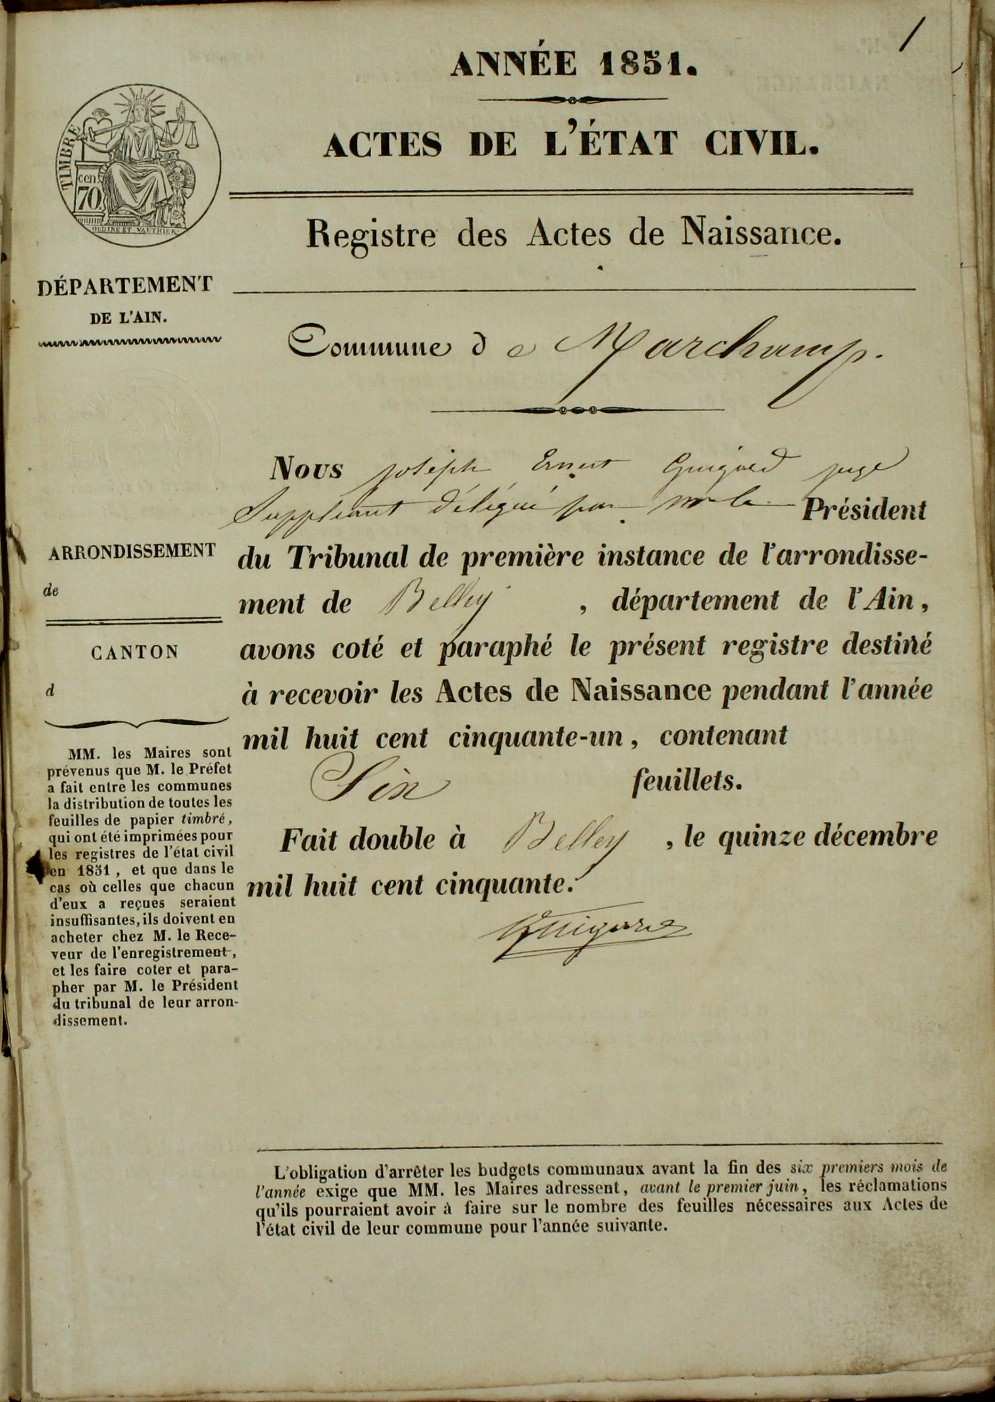 1
ANNÉE 1851.
ACTES DE L'ÉTAT CIVIL.
TIMBRE
cen
70
Registre des Actes de Naissance.
DÉPARTEMENT
DE L'AIN.
Commune de Marchamp.
Nous joseph Ernest Guigard juge
Suppléant délégué par mr le Président
du Tribunal de première instance de l'arrondisse-
ment de Belley, département de l'Ain,
avons coté et paraphé le présent registre destiné
à recevoir les Actes de Naissance pendant l'année
mil huit cent cinquante-un, contenant
Six feuillets.
Fait double à Belley, le quinze décembre
mil huit cent cinquante.
Guigard
ARRONDISSEMENT
de
CANTON
d
MM. les Maires sont
prévenus que M. le Préfet
a fait entre les communes
la distribution de toutes les
feuilles de papier timbré,
qui ont été imprimées pour
les registres de l'état civil
en 1851, et que dans le
cas où celles que chacun
d'eux a reçues seraient
insuffisantes, ils doivent en
acheter chez M. le Rece-
veur de l'enregistrement,
et les faire coter et para-
pher par M. le Président
du tribunal de leur arron-
dissement.
L'obligation d'arrêter les budgets communaux avant la fin des six premiers mois de
l'année exige que MM. les Maires adressent, avant le premier juin, les réclamations
qu'ils pourraient avoir à faire sur le nombre des feuilles nécessaires aux Actes de
l'état civil de leur commune pour l'année suivante.